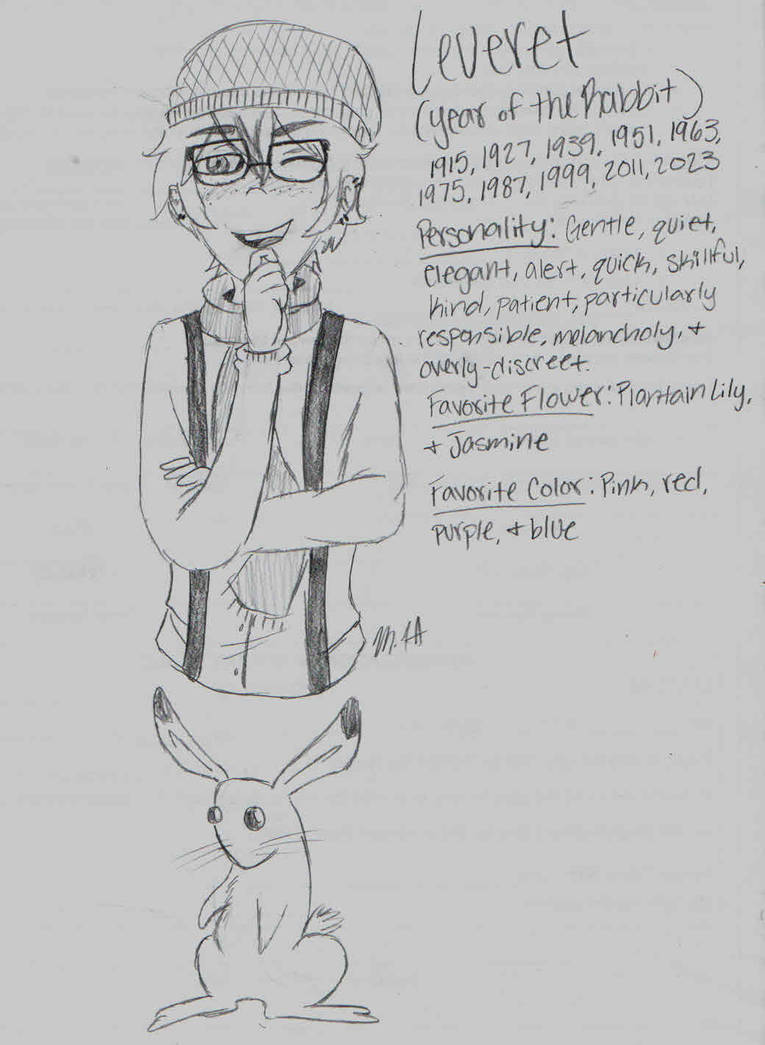 Leveret
(year of the Rabbit)
1915, 1927, 1939, 1951, 1963,
1975, 1987, 1999, 2011, 2023
Personality: Gentle, quiet,
elegant, alert, quick, skillful,
kind, patient, particularly
responsible, melancholy, +
overly-discreet.
Favorite Flower: Plantain Lily,
+ Jasmine
Favorite Color: Pink, red,
purple, + blue